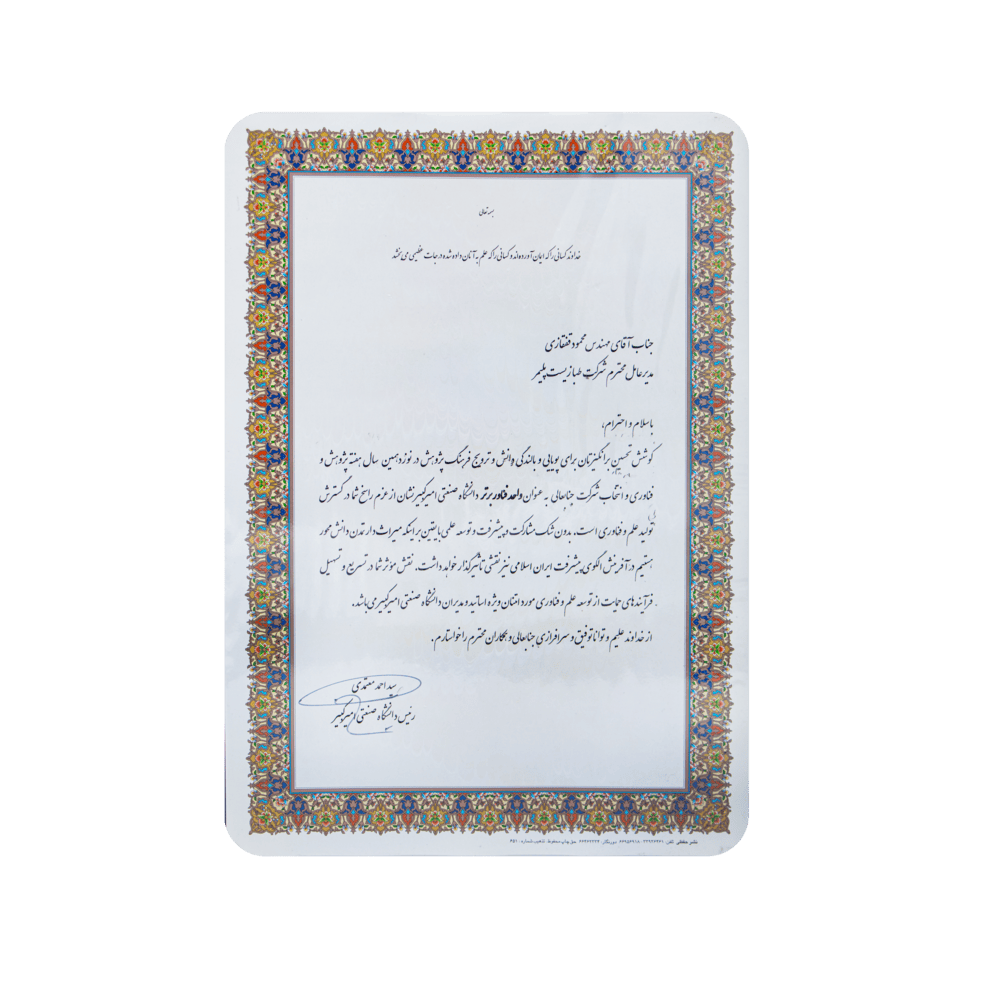 بسمه تعالی
خداوند کسانی را که ایمان آورده‌اند و کسانی را که علم به آنان داده شده درجات عظیمی می بخشد
جناب آقای مهندس محمود قفقازی
مدیرعامل محترم شرکت طبا زیست پلیمر
با سلام و احترام،
کوشش تحسین برانگیزتان برای پویایی و بالندگی دانش و ترویج فرهنگ پژوهش در نوزدهمین سال هفته پژوهش و
فناوری و انتخاب شرکت جنابعالی به عنوان واحد فناور برتر دانشگاه صنعتی امیرکبیر نشان از عزم راسخ شما در گسترش
تولید علم و فناوری است. بدون شک مشارکت در پیشرفت و توسعه علمی با یقین بر اینکه میراث دار تمدن دانش محور
هستیم در آفرینش الگوی پیشرفت ایران اسلامی نیز نقشی تأثیرگذار خواهد داشت. نقش مؤثر شما در تسریع و تسهیل
فرآیندهای حمایت از توسعه علم و فناوری مورد امتنان ویژه اساتید و مدیران دانشگاه صنعتی امیرکبیر می باشد.
از خداوند علیم و توانا توفیق و سرافرازی جنابعالی و همکاران محترم را خواستارم.
سید احمد معتمدی
رئیس دانشگاه صنعتی امیرکبیر